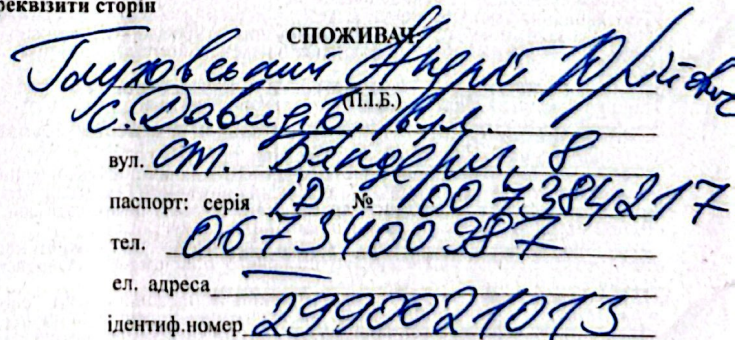 реквізити сторін
СПОЖИВАЧ:
Глуховський Андрій Юрійович
(П.І.Б.)
с. Давидів, вул.
вул. Ст. Бандери, 8
паспорт: серія ID № 007384217
тел. 0673400987
ел. адреса
ідентиф.номер 2990021013